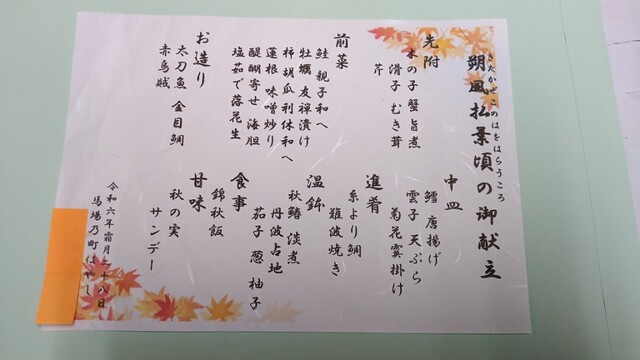 きたかぜこのはをはらうころ
朔風払葉頃の御献立
先附
木の子 蟹 旨煮
滑子 むき茸
芹
前菜
鮭 親子和へ
牡蠣 友禅漬け
柿 胡瓜 利休和へ
蓮根 味噌炒り
醍醐寄せ 海胆
塩茹で落花生
お造り
太刀魚 金目鯛
赤烏賊
中皿
鱈 唐揚げ
雲子 天ぷら
菊花霙掛け
進肴
糸より鯛
雑波焼き
温鉢
秋鰆 淡煮
丹波占地
茄子 葱 柚子
食事
錦秋飯
甘味
秋の実
サンデー
令和六年霜月二十八日
馬場乃町はやし